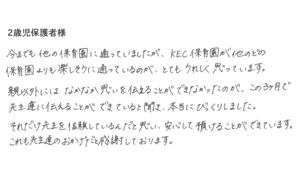 2歳児保護者様
今までも他の保育園に通っていましたが、KEC保育園が他のどの
保育園よりも楽しそうに通っているのが、とてもうれしく思っています。
親以外にはなかなか思いを伝えることができなかったのが、この3ヶ月で
先生達に伝えることができていると聞き、本当にびっくりしました。
それだけ先生を信頼しているんだと思い、安心して預けることができています。
これも先生達のおかげだと感謝しております。